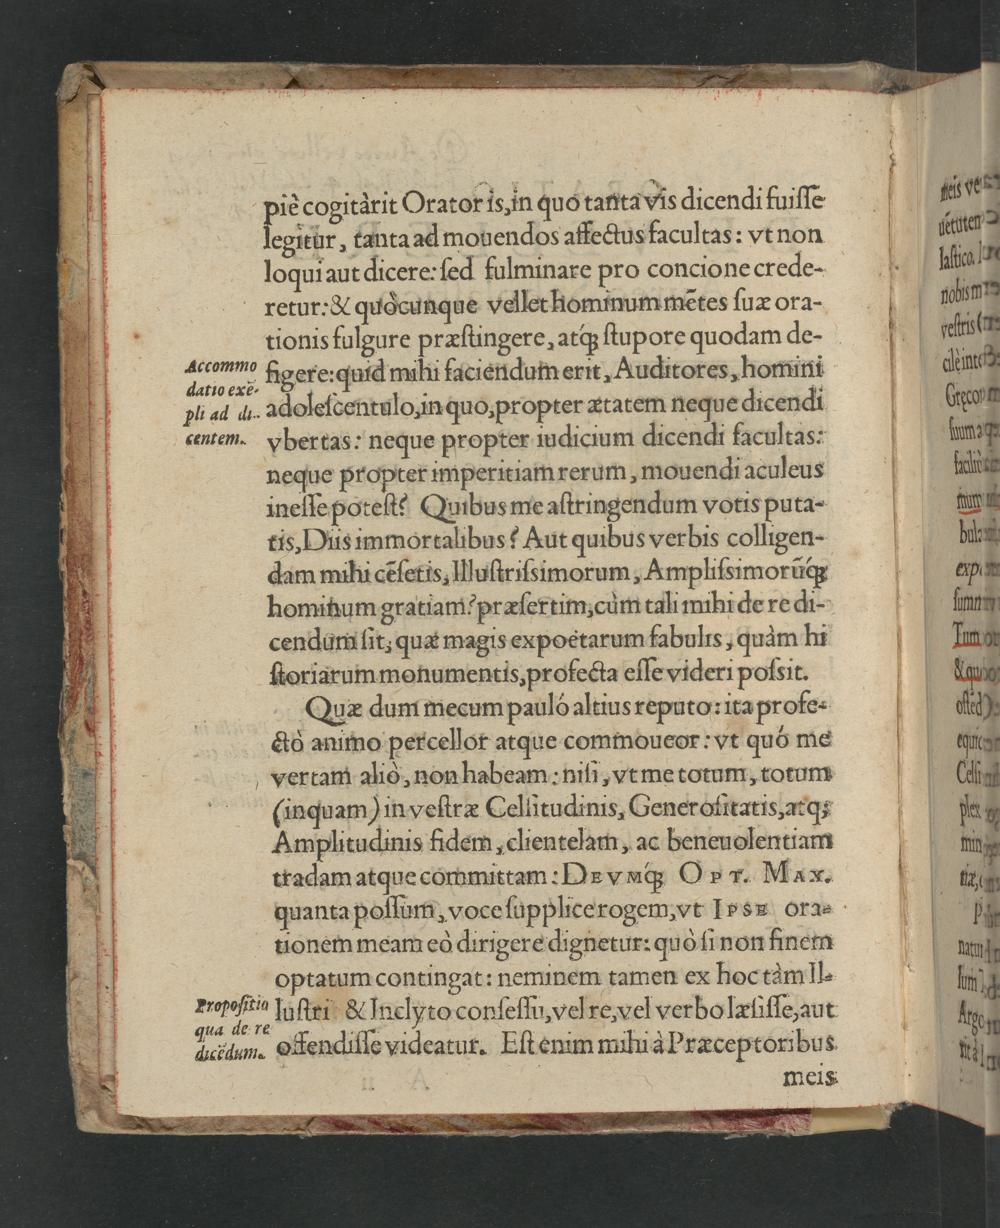 piè cogitàrit Orator is, in quo tanta vis dicendi fuiſſe
legitur, tanta ad mouendos affectus facultas: vt non
loqui aut dicere: ſed fulminare pro concione crede-
retur: & quòcunque vellet hominum mẽtes ſuæ ora-
tionis fulgure præſtingere, atq́ꝫ ſtupore quodam de-
figere: quid mihi faciendum erit, Auditores, homini
adoleſcentulo, in quo, propter ætatem neque dicendi
vbertas: neque propter iudicium dicendi facultas:
neque propter imperitiam rerum, mouendi aculeus
ineſſe poteſt? Quibus me aſtringendum votis puta-
tis, Diis immortalibus? Aut quibus verbis colligen-
dam mihi cẽſetis, Illuſtriſsimorum, Ampliſsimorũq́ꝫ
hominum gratiam? præſertim, cùm tali mihi de re di-
cendum ſit; quæ magis expoëtarum fabulis, quàm hi
ſtoriarum monumentis, profecta eſſe videri poſsit.
Quæ dum mecum pauló altius reputo: ita profe-
ctò animo percellor atque commoueor: vt quó me
vertam aliò, non habeam: niſi, vt me totum, totum
(inquam) in veſtræ Celſitudinis, Generoſitatis, atq;
Amplitudinis fidem, clientelam, ac beneuolentiam
tradam atque committam: DEVMq́ꝫ OPT. MAX.
quanta poſſum, voce ſupplice rogem, vt IPSE ora-
tionem meam eò dirigere dignetur: quò ſi non finem
optatum contingat: neminem tamen ex hoc tàm Il-
luſtri & Inclyto conſeſſu, vel re, vel verbo læſiſſe, aut
offendiſſe videatur. Eſt enim mihi à Præceptoribus
meis
Accommo
datio exẽ-
pli ad di-
centem.
Propoſitio
qua de re
dicẽdum.
meis ve
laſtico.
nobis m
veſtris (
ſuum
faciliè
mum
bula
exp
ſumm
Tum
& quo
Celſi
plex
min
natur
Argo